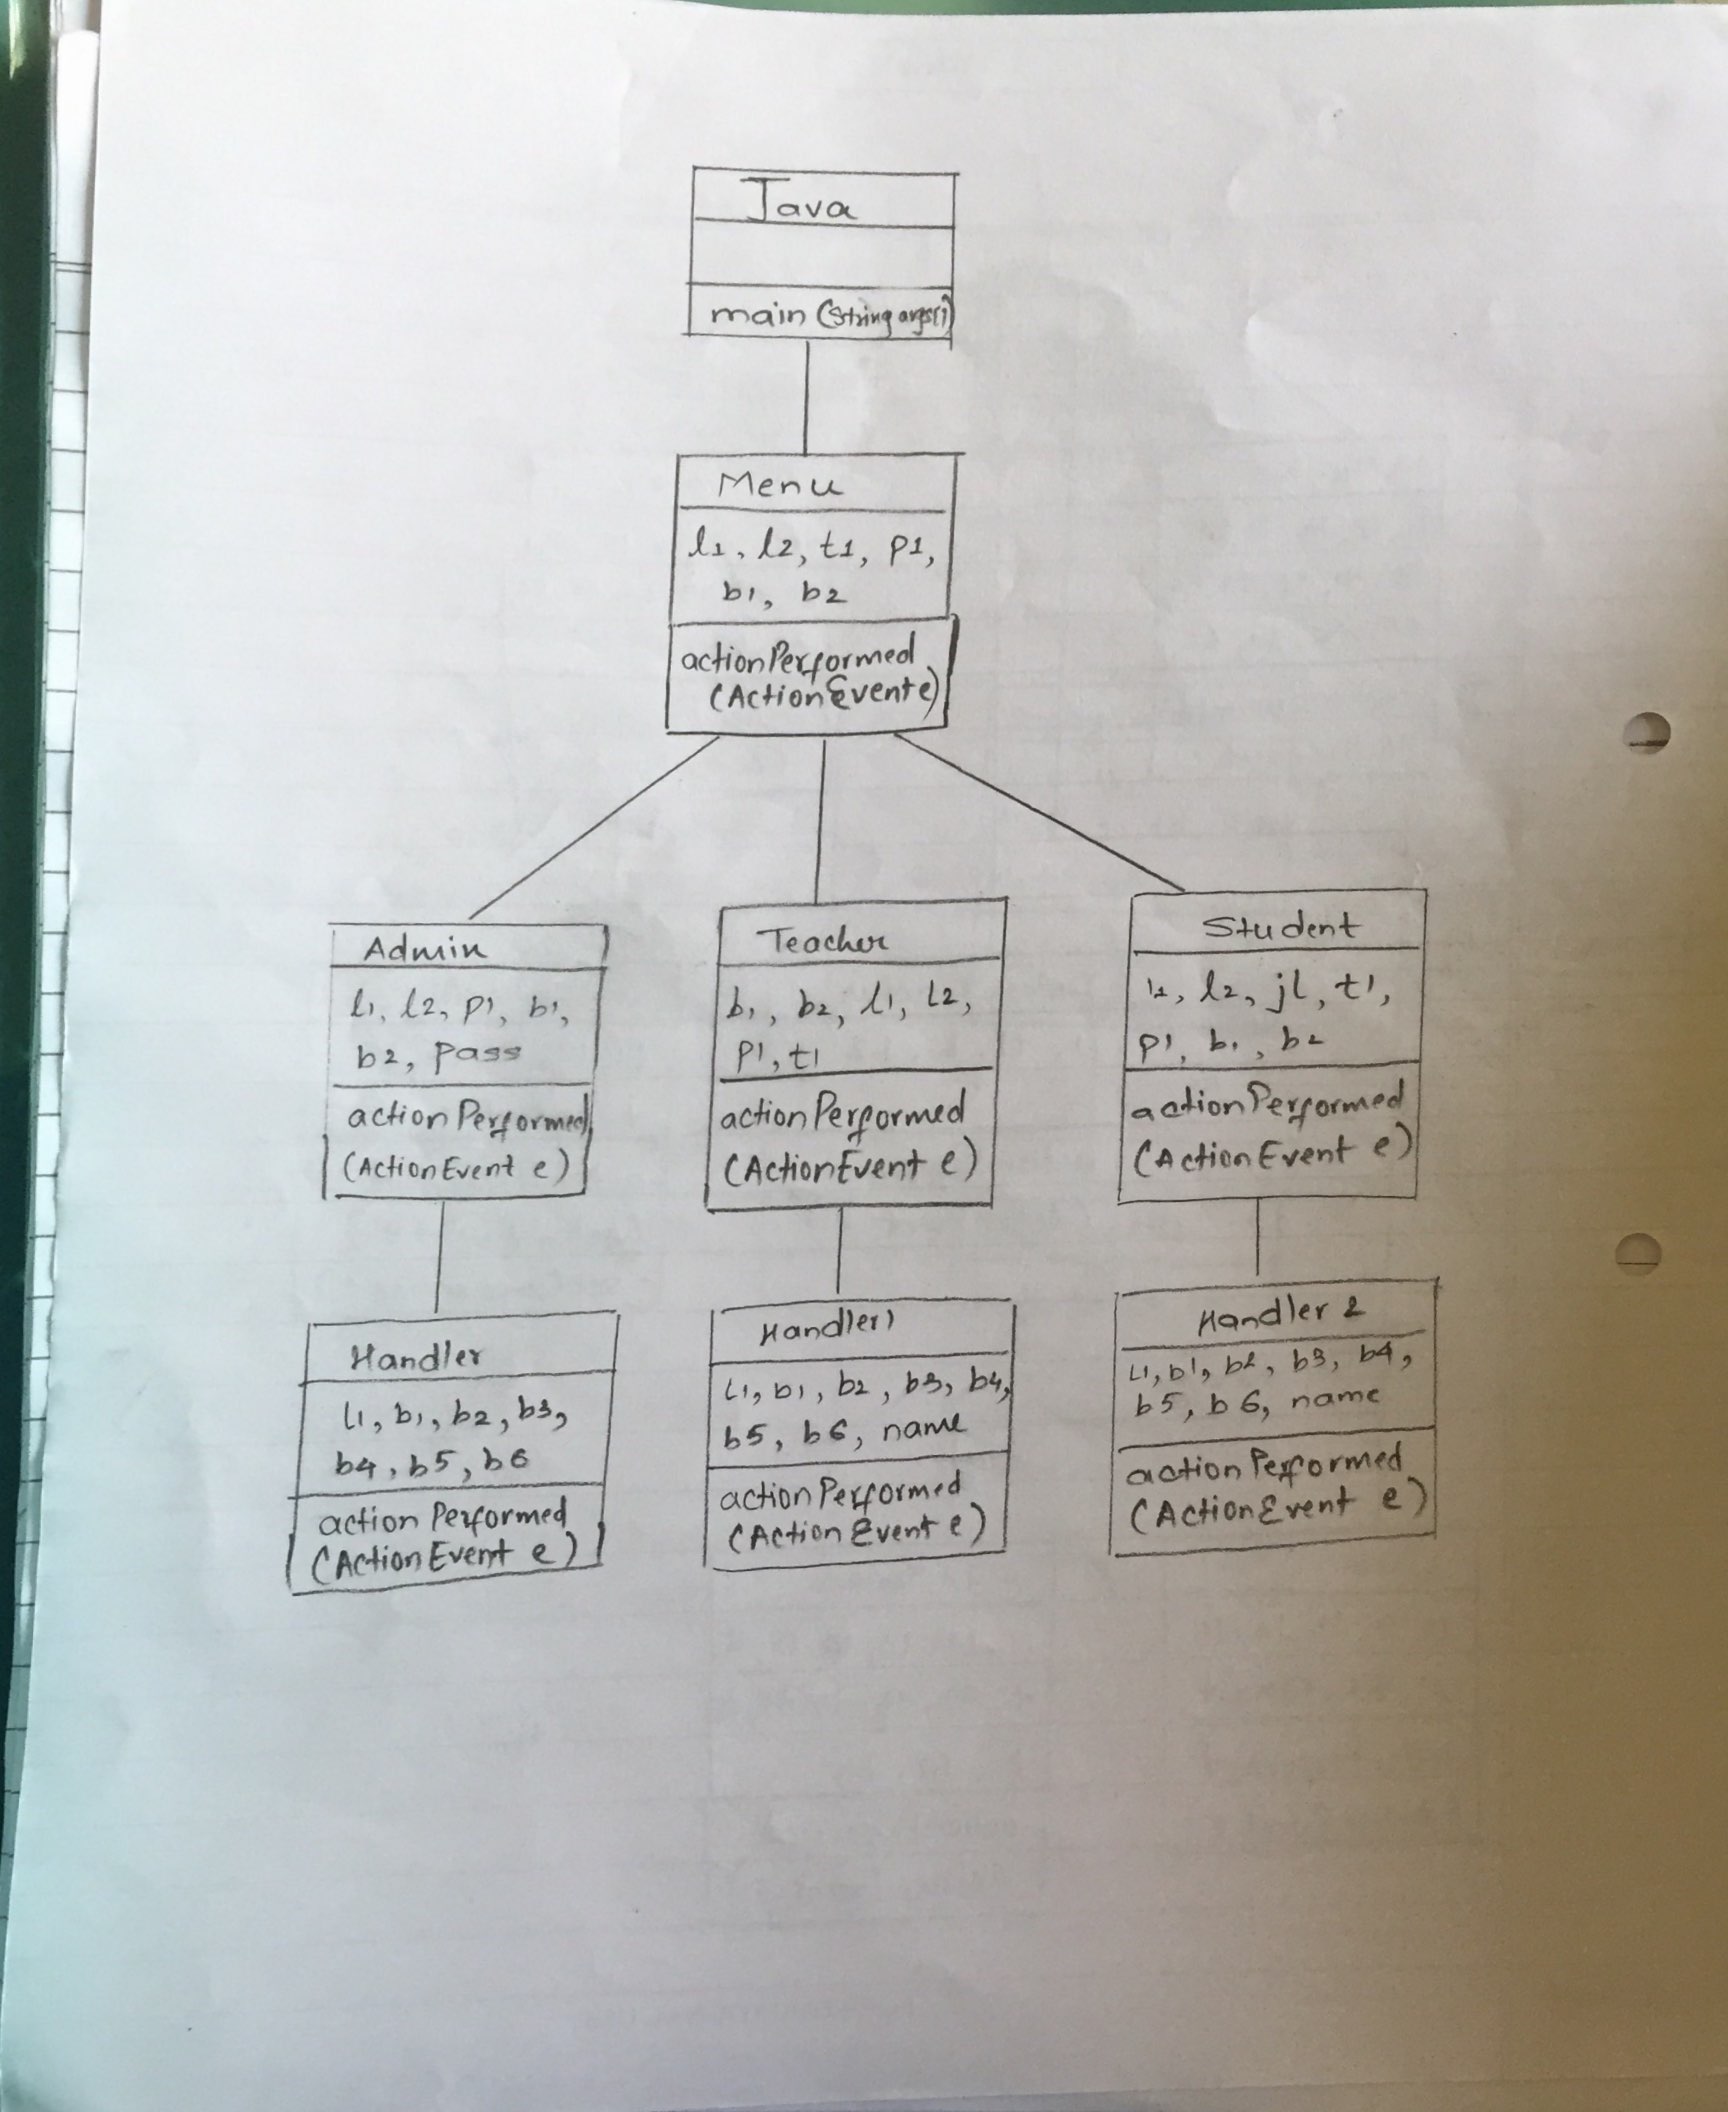 Java
main (String args[])
Menu
l1, l2, t1, p1,
b1, b2
actionPerformed
(ActionEvent e)
Admin
l1, l2, p1, b1,
b2, pass
actionPerformed
(ActionEvent e)
Teacher
b1, b2, l1, l2,
p1, t1
actionPerformed
(ActionEvent e)
Student
l2, jl, t1,
p1, b1, b2
actionPerformed
(ActionEvent e)
Handler
L1, b1, b2, b3,
b4, b5, b6
actionPerformed
(ActionEvent e)
Handler1
L1, b1, b2, b3, b4,
b5, b6, name
actionPerformed
(ActionEvent e)
Handler 2
L1, b1, b2, b3, b4,
b5, b6, name
actionPerformed
(ActionEvent e)